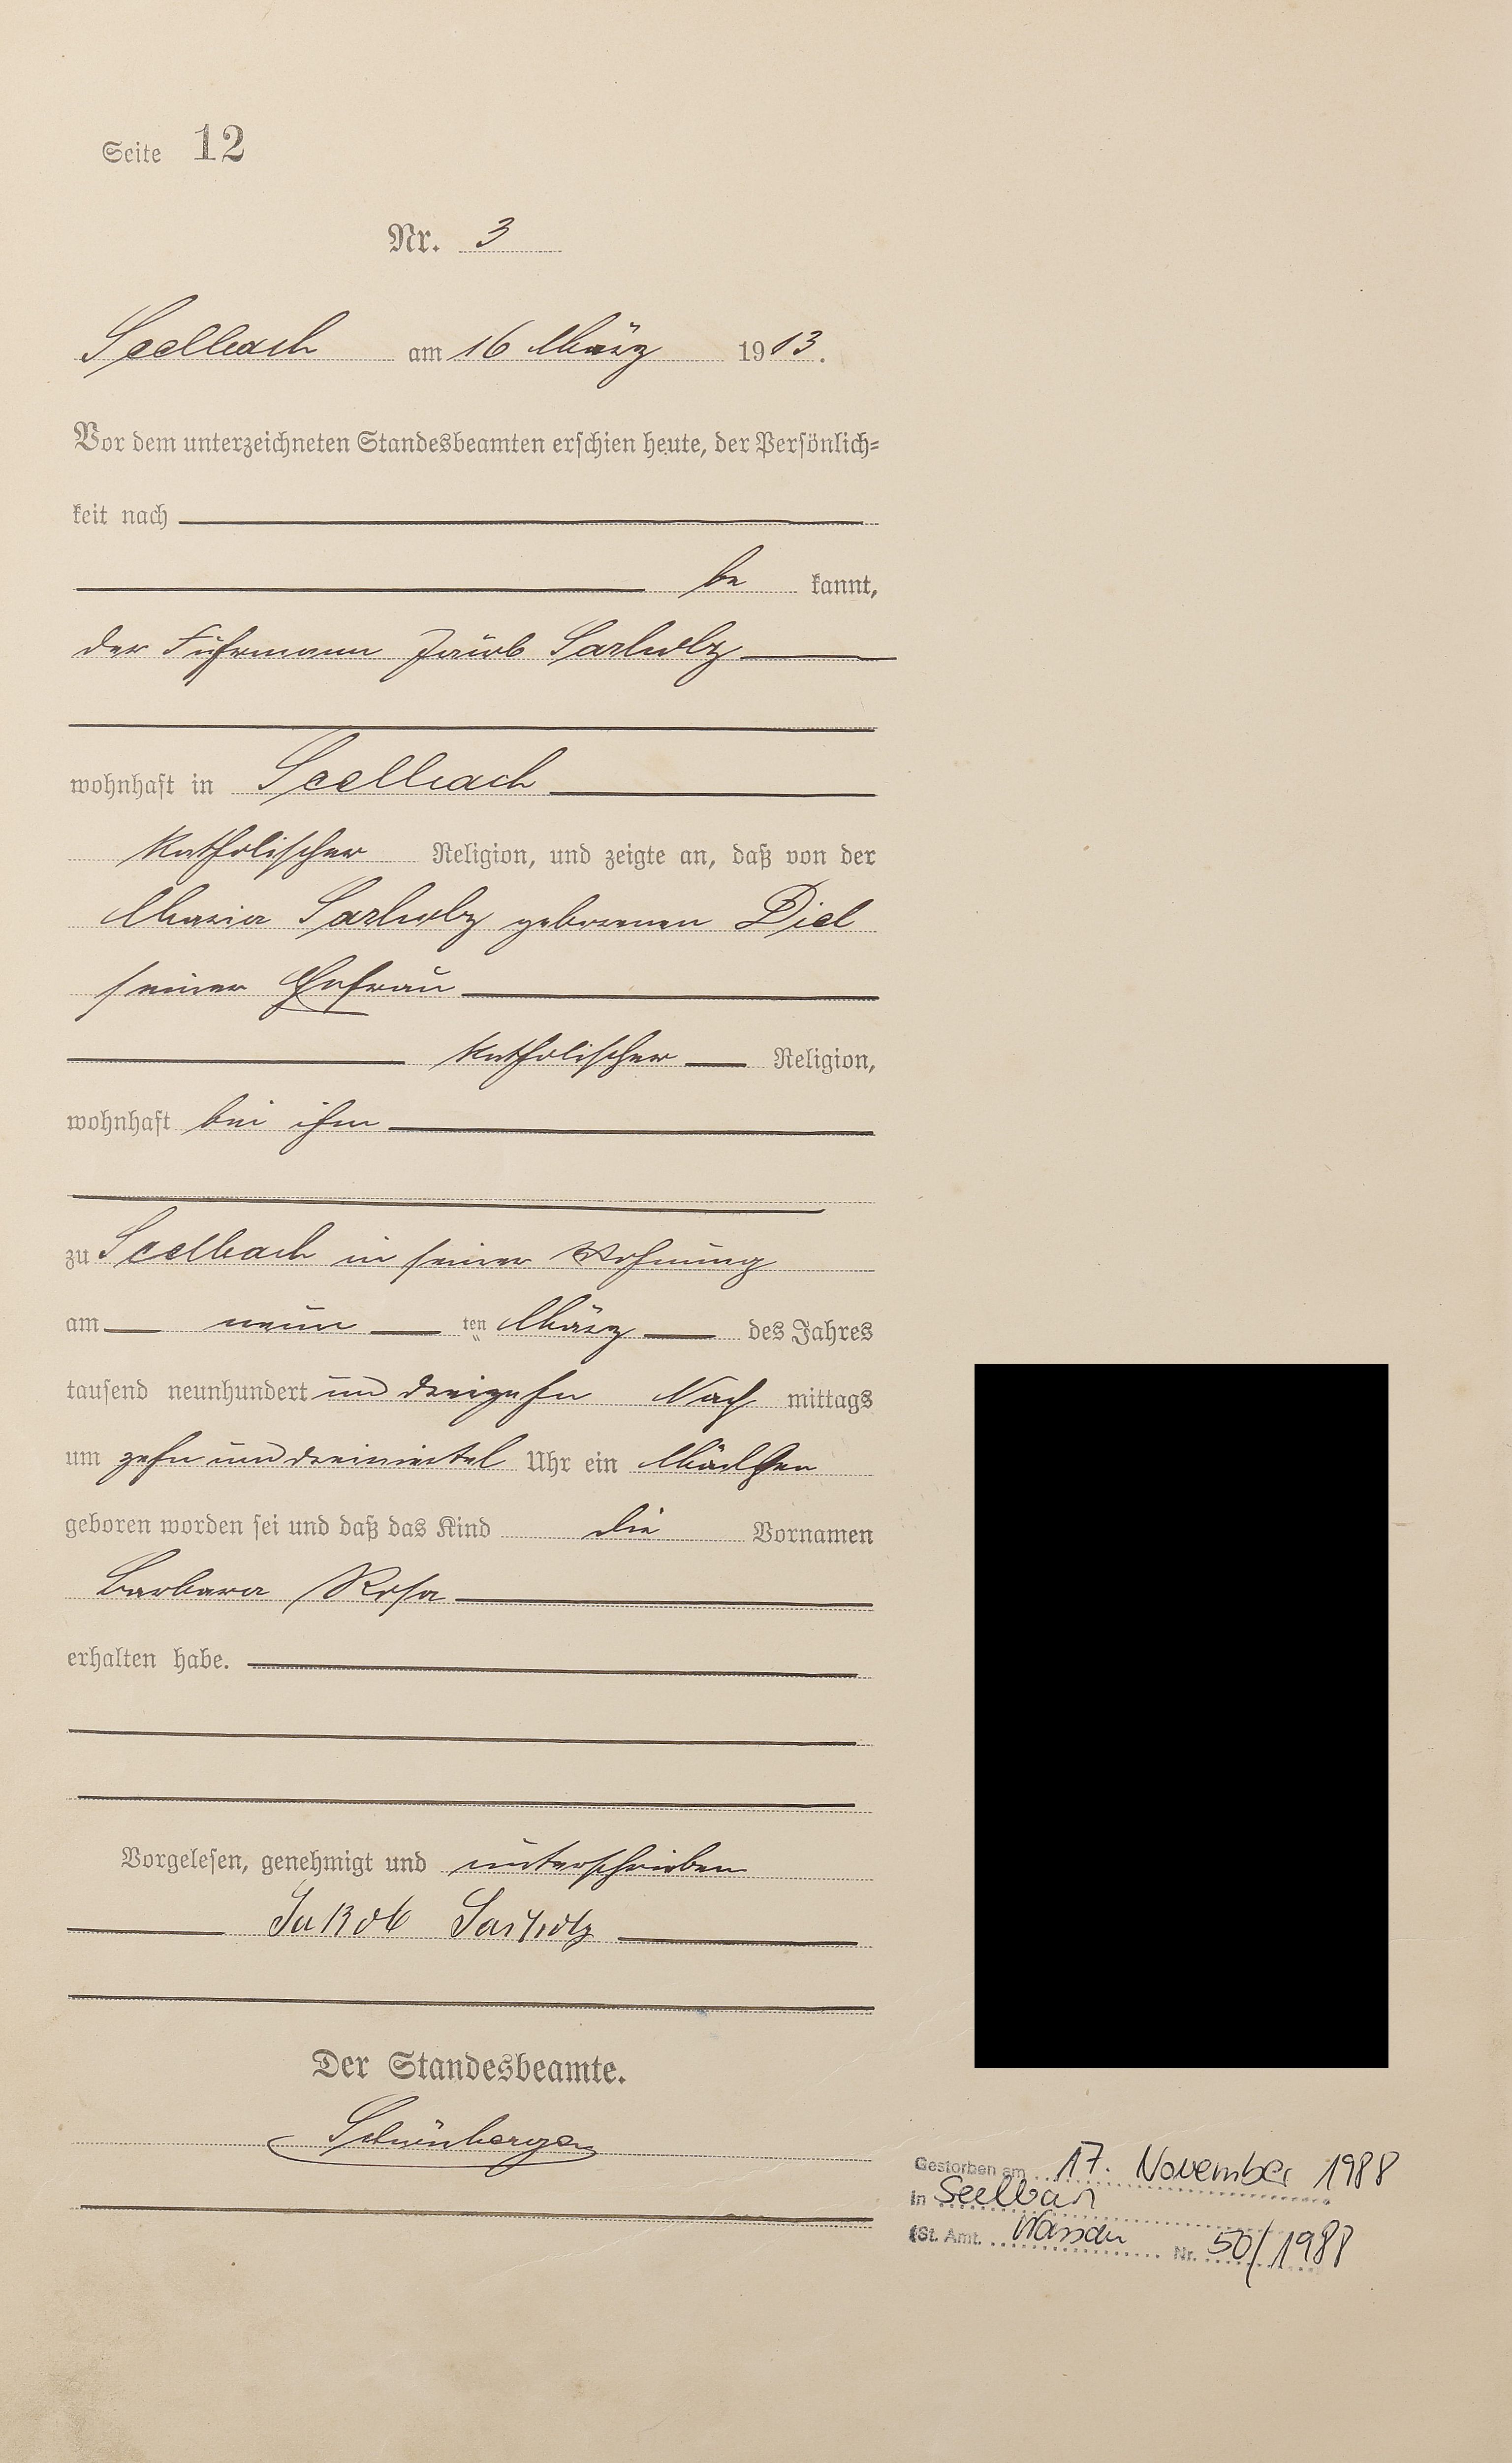 Seite 12
Nr. 3
Seelbach am 16 März 1913.
Vor dem unterzeichneten Standesbeamten erschien heute, der Persönlich-
keit nach
be kannt,
der Fuhrmann Jacob Sarholz
wohnhaft in Seelbach
katholischer Religion, und zeigte an, daß von der
Maria Sarholz geborenen Diel
seiner Ehefrau
katholischer Religion,
wohnhaft bei ihm
zu Seelbach in seiner Wohnung
am neun ten März des Jahres
tausend neunhundert und dreizehn Nach mittags
um zehn und dreiviertel Uhr ein Mädchen
geboren worden sei und daß das Kind die Vornamen
Barbara Rosa
erhalten habe.
Vorgelesen, genehmigt und unterschrieben
Jakob Sarholz
Der Standesbeamte.
Gestorben am 17. November 1988
in Seelbach
(St. Amt. Nassau Nr. 50/1988